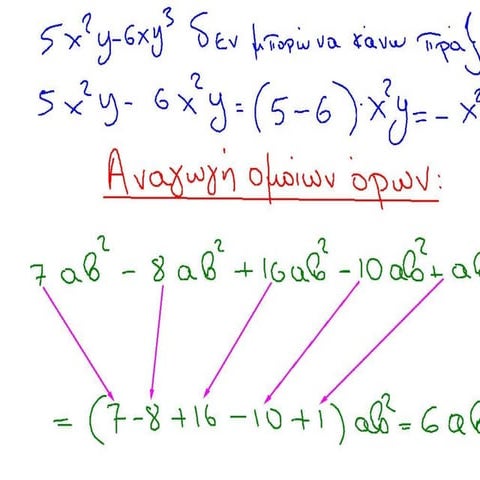 5x²y-6xy³ δεν μπορώ να κάνω
5x²y - 6x²y = (5-6)·x²y = - x²
Αναγωγή ομοίων όρων:
7ab² - 8ab² + 16ab² - 10ab² + ab
= (7-8+16-10+1) ab² = 6ab